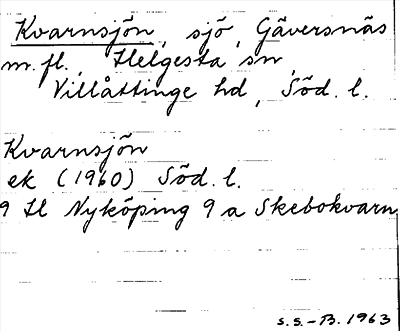 Kvarnsjön, sjö, Gäversnäs
m.fl., Helgesta sn,
Villåttinge hd, Söd. l.
Kvarnsjön
ek (1960) Söd. l.
9 H Nyköping 9 a Skebokvarn
S.S.-B. 1963